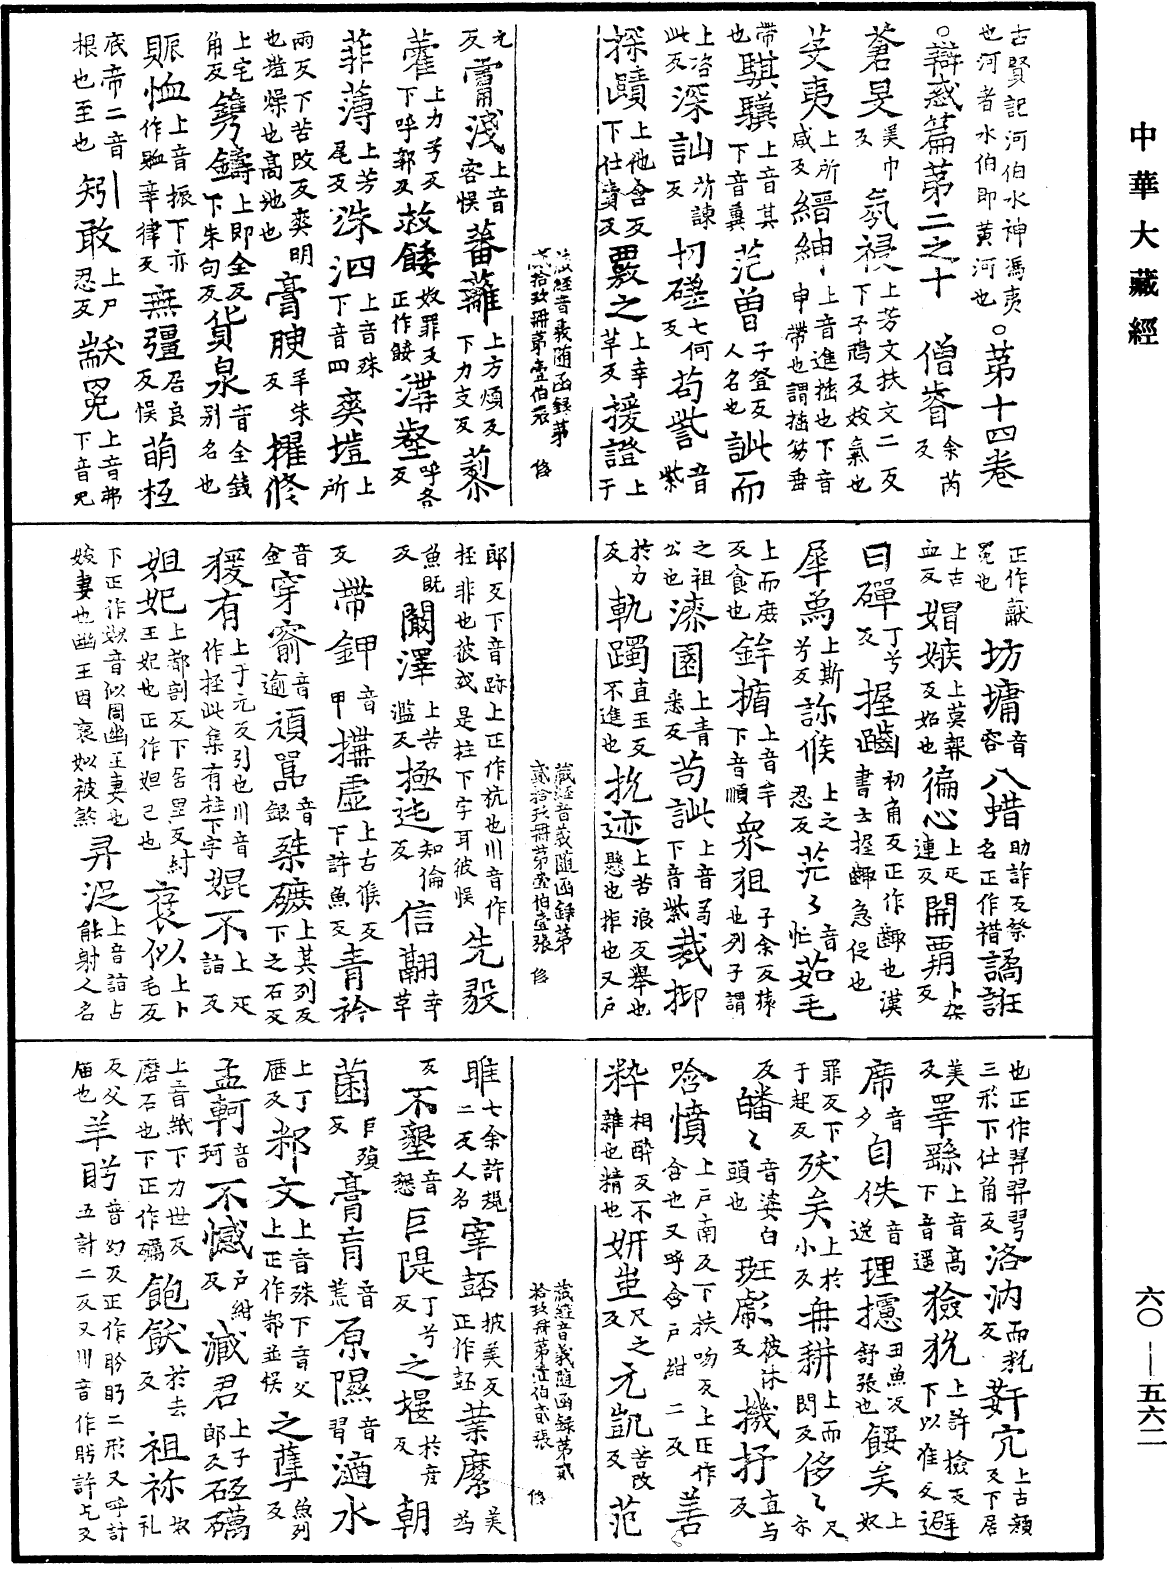 中華大藏經
六〇—五六二
古賢記河伯水神馮夷
也河者水伯即黃河也
。第十四卷
。辯惑篇第二之十
僧䘏余芮反
蒼旻美巾反
氛祲上芳文扶文二反下子鴆反妖氣也
芟夷上所咸反
縉紳上音進搢也下音申帶也謂搢笏垂帶也
騏驥上音其下音冀
范曾子登反人名也
訿而上咨此反
深訕所諫反
切磋七何反
苟訾音紫
探賾上他含反下仕責反
覈之上幸革反
援證上于元反
膚淺上音容悞
蕃蘺上方煩反下力支反
藜藿上力兮反下呼郭反
救餧奴罪反正作餒
溝壑呼各反
菲薄上芳尾反
洙泗上音殊下音四
爽塏上所兩反下苦改反爽明也塏燥也高地也
膏腴羊朱反
擢脩上宅角反
鐫鑄上即全反下朱句反
貨泉音全錢別名也
賑恤上音振下亦作賉辛律反
無疆居良反悞
萌柢底帝二音根也至也
矧敢上尸忍反
黻冕上音弗下音免
正作黻冕也
坊墉音容
八蜡助詐反祭名正作䄍
譎詿上古血反
媢嫉上莫報反妬也
徧心上疋連反
開覇卜架反
曰磾丁兮反
握齱初角反正作齱也漢書云握齱急促也
犀象上斯兮反
諒候上之忍反
茫茫音忙
茹毛上而庶反食也
鉾楯上音牟下音順
眾狙子余反猿也列子謂之祖公也
漆園上青悉反
苟訿下音紫
裁抑於力反
軌躅直玉反不進也
抗迹上苦浪反舉也懸也拒也又戶郎反下音跡上正作杭也川音作抂非也彼或是柱下字耳彼悞
先毅魚既反
闞澤上苦濫反
極迍知倫反
信翮幸革反
帶鉀音甲
構虛上古候反下許魚反
青衿音金
穿窬音逾
頑嚚音銀
桀礦上其列反下之石反
猨有上于元反引也川音作抂此集有柱下字
焜不上疋詣反
妲妃上都割反下居里反紂王妃也正作妲己也
褒似上卜毛反下正作姒音似周幽王妻也
嫁妻也幽王因褒姒被煞
羿浞上音詣古能射人名也正作羿羿䍿三形下仕角反
洛汭而銳反
姧宄上古顏反下居美反
睾繇上音高下音遥
獫狁上許撿反下以准反
避席音夕
自佚音送
理攄丑魚反舒張也
餒矣上奴罪反下
殀矣上於小反
冉耕上而閃反
侈侈尺尒反
皤皤音婆白頭也
斑彪彼休反
機抒直与反
唅憤上戶南反下扶吻反上正作含也又呼含戶紺二反
善粹相醉反不雜也精也
妍蚩尺之反
元凱苦改反
范雎七余許規二反人名
宰嚭披美反正作嚭
葉縻美為反
不墾音懇
巨隄丁兮反
之堰於彥反
朝菌巨殞反
膏肓音荒
原隰音習
滷水上丁歷反
邾文上音殊下音父上正作邾並悞
之孽魚列反
孟軻音珂
不憾戶紺反
減君上子郎反
砥礪上音紙下力世反磨石也下正作礪
飽飫於去反
祖祢奴礼反父庿也
羊眄音幻反正作盻眄二形又呼計五計二反又川音作眄許乞反
藏經音義隨函錄第貳拾玖冊第壹伯張 修
藏經音義隨函錄第貳拾玖冊第壹伯壹張 修
藏經音義隨函錄第貳拾玖冊第壹伯貳張 修